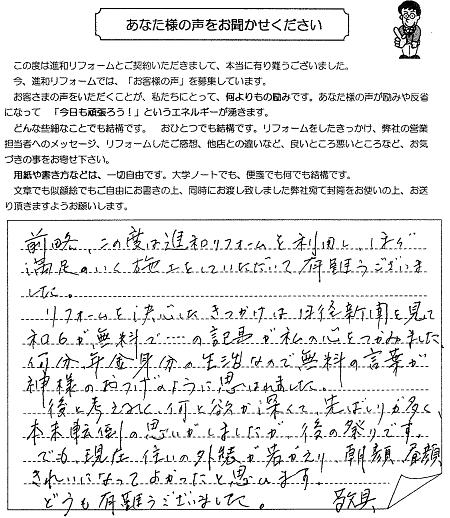 あなた様の声をお聞かせください
この度は進和リフォームとご契約いただきまして、本当に有り難うございました。
今、進和リフォームでは、「お客様の声」を募集しています。
お客さまの声をいただくことが、私たちにとって、何よりもの励みです。あなた様の声が励みや反省
になって 「今日も頑張ろう！」というエネルギーが湧きます。
どんな些細なことでも結構です。 おひとつでも結構です。リフォームをしたきっかけ、弊社の営業
担当者へのメッセージ、リフォームしたご感想、他店との違いなど、良いところ悪いところなど、お気
づきの事をお寄せ下さい。
用紙や書き方などは、一切自由です。大学ノートでも、便箋でも何でも結構です。
文章でも似顔絵でもご自由にお書きの上、同時にお渡し致しました弊社宛て封筒をお使いの上、お送
り頂きますようお願いします。
前略、この度は進和リフォームを利用し、ほぼ
満足のいく施工をしていただいて有難うございま
した。
リフォームを決心したきっかけは 新聞を見て
が、無料で……の記事が私の心をつかみました
何分年金身分の生活なので無料の言葉が
神様のおつげのように思われました。
後を考えるに、何と欲が深くて、先ばしりが多く、
本末転倒の思いがしましたが、後の祭りです。
でも、現在住いの外装が若がえり、朝顔、昼顔、
きれいになってよかったと思います。
どうも有難うございました。 敬具